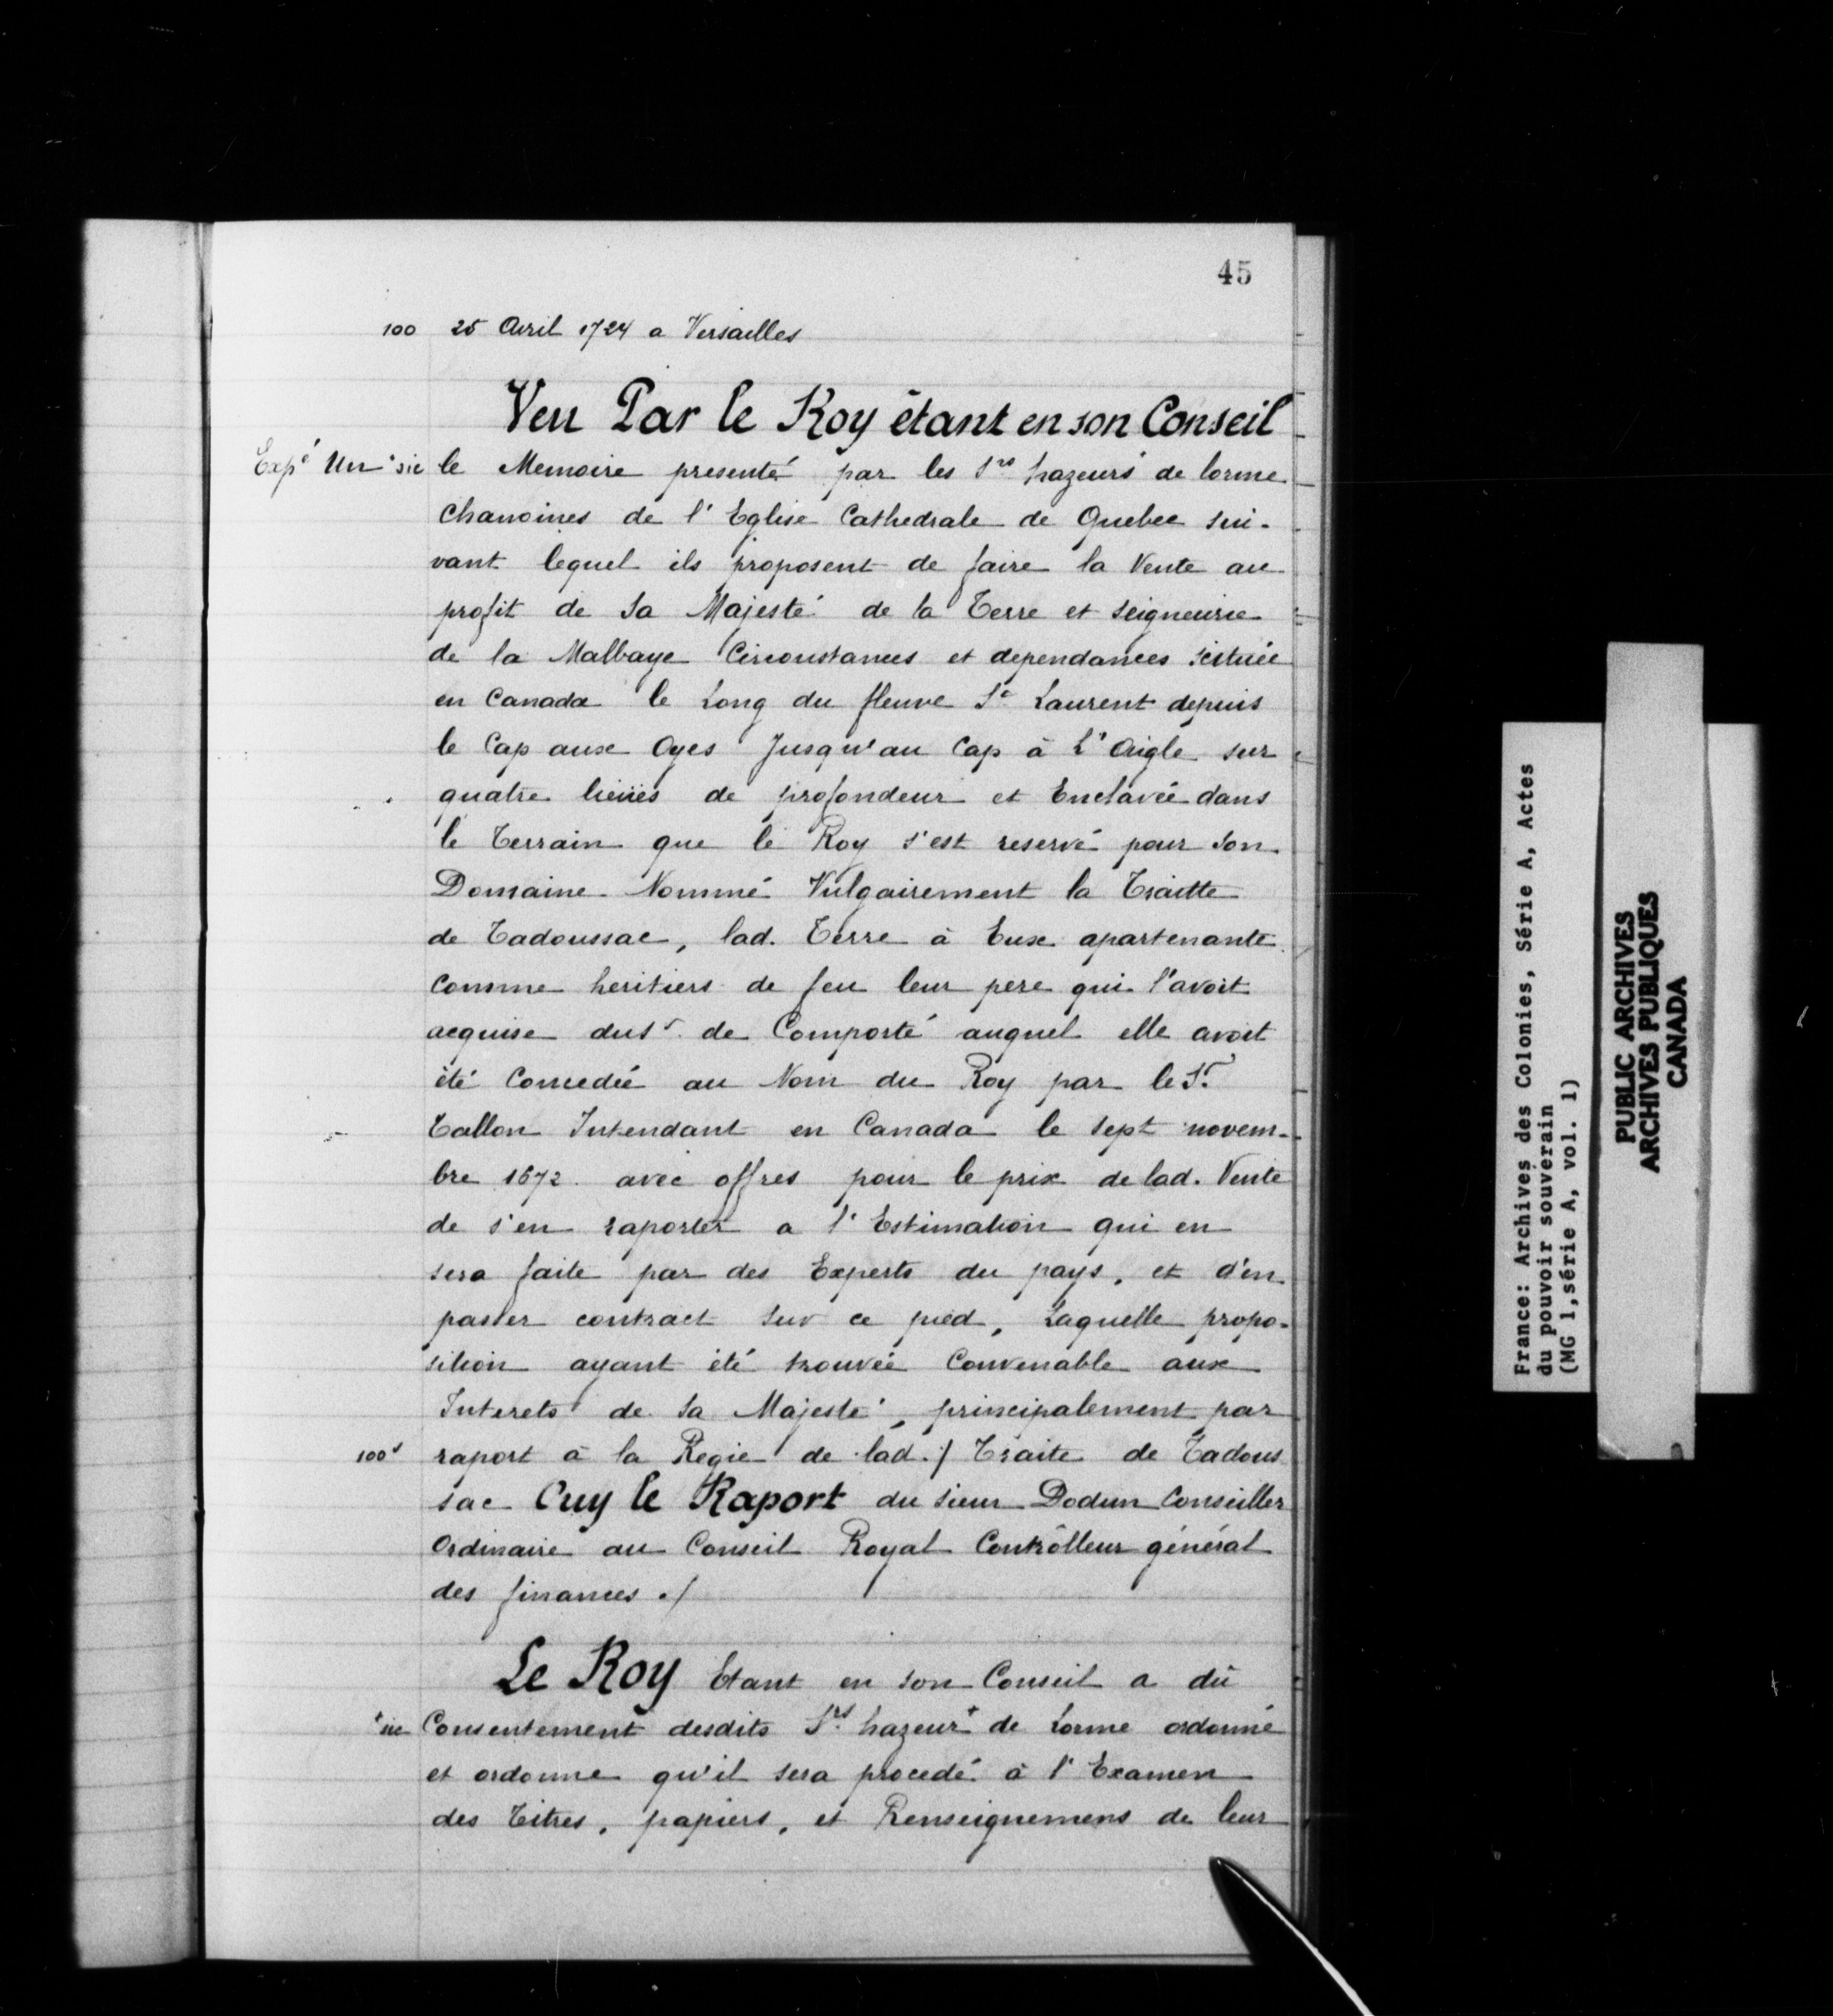 45
100 25 Avril 1724 a Versailles
Veu Par le Roy étant en son Conseil
Expé Un + sic le Memoire presenté par les Srs hazeurs de lorme
Chanoines de l'Eglise Cathedrale de Quebec sui-
vant lequel ils proposent de faire la Vente au
profit de Sa Majesté de la Terre et seigneurie
de la Malbaye Circonstances et dependances scituée
en Canada le Long du fleuve St Laurent depuis
le Cap aux Oyes Jusqu'au Cap à L'Aigle sur
quatre lieües de profondeur et Enclavée dans
le Terrain que le Roy s'est reservé pour Son
Domaine Nommé Vulgairement la Traitte
de Tadoussac, lad. Terre à Eux apartenante
Comme heritiers de feu leur pere qui l'avoit
acquise du Sr de Comporté auquel elle avoit
été Concedée au Nom du Roy par le Sr
Tallon Intendant en Canada le Sept novem-
bre 1672. avec offres pour le prix de lad. Vente
de s'en raporter a l'Estimation qui en
sera faite par des Experts du pays, et d'en
passer contract sur ce pied, Laquelle propo-
sition ayant été trouvée Convenable aux
Interets de Sa Majesté, principalement par
100v raport à la Regie de lad./ Traite de Tadous
sac Ouy le Raport du Sieur Dodun Conseiller
Ordinaire au Conseil Royal Contrôlleur général
des finances ./
Le Roy Etant en Son Conseil a du
+ sic Consentement desdits Srs hazeur + de Lorme ordonné
et ordonne qu'il sera procedé à l'Examen
des Titres, papiers, et Renseignemens de leur
France: Archives des Colonies, Série A, Actes
du pouvoir souverain
(MG 1,série A, vol. 1)
PUBLIC ARCHIVES
ARCHIVES PUBLIQUES
CANADA